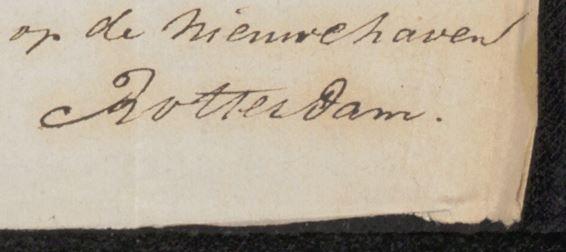 op de Nieuwehaven
Rotterdam.